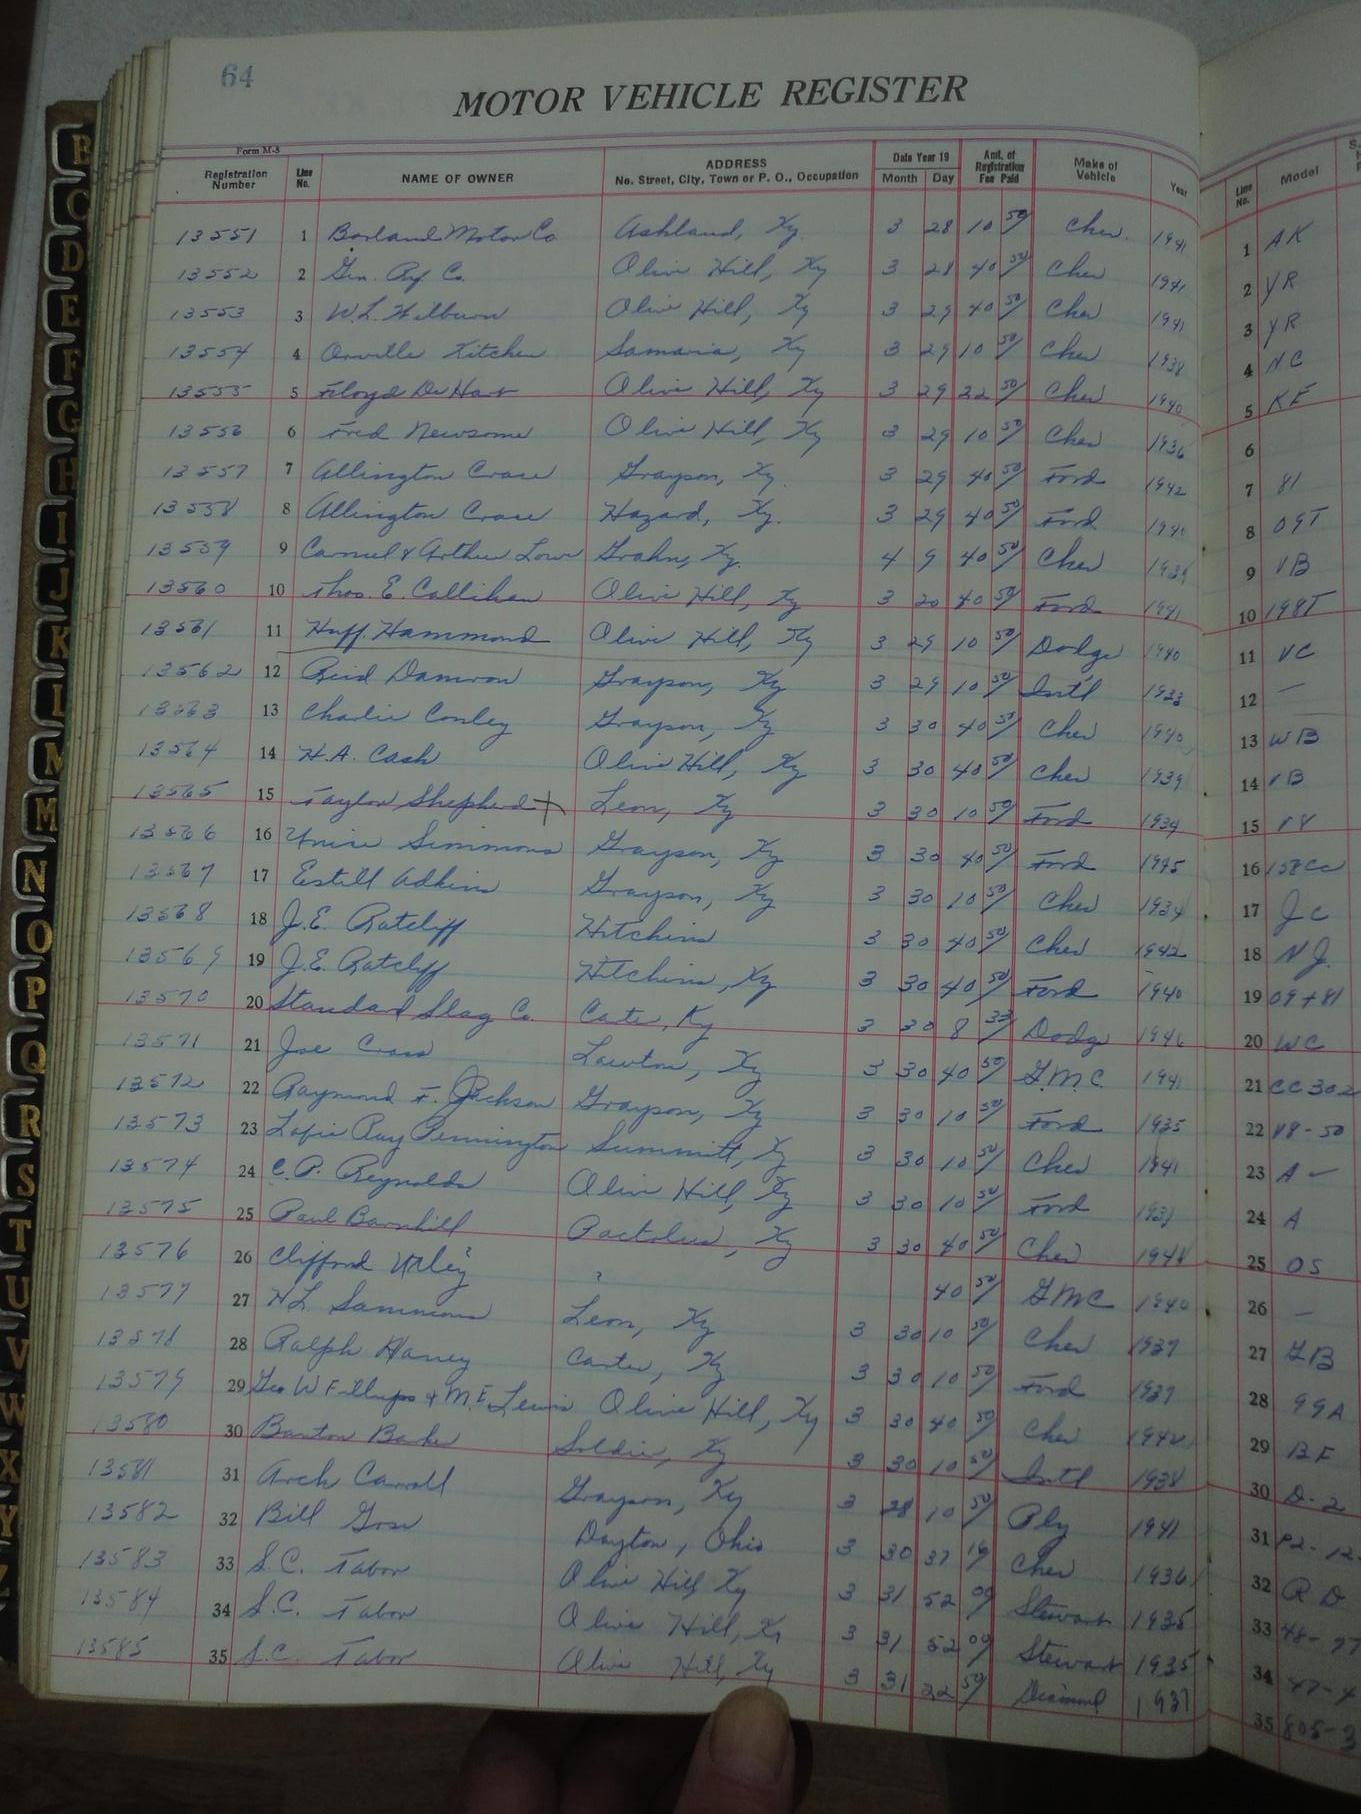 64
MOTOR VEHICLE REGISTER
Form M-5
Registration Number Line No. NAME OF OWNER ADDRESS No. Street, City, Town or P. O., Occupation Date Year 19 Month Day Amt. of Registration Fee Paid Make of Vehicle Year Line No. Model
13551 1 Borland Motor Co Ashland, Ky. 3 28 10 50 Chev. 1941 1 AK
13552 2 Gen. Ref. Co. Olive Hill, Ky 3 28 40 50 Chev 1941 2 YR
13553 3 W.L. Wilburn Olive Hill, Ky 3 29 40 50 Chev 1941 3 YR
13554 4 Orville Kitchen Samaria, Ky 3 29 10 50 Chev 1938 4 NC
13555 5 Floyd DeHart Olive Hill, Ky 3 29 22 50 Chev 1940 5 KF
13556 6 Fred Newsome Olive Hill, Ky 3 29 10 50 Chev 1936 6
13557 7 Allington Crace Grayson, Ky. 3 29 40 50 Ford 1942 7 81
13558 8 Allington Crace Hazard, Ky. 3 29 40 50 Ford 1940 8 09T
13559 9 Carmel & Arthur Lowe Grahn, Ky. 4 9 40 50 Chev 1939 9 VB
13560 10 Thos. E. Callihan Olive Hill, Ky 3 20 40 50 Ford 1941 10 198T
13561 11 Huff. Hammond Olive Hill, Ky 3 29 10 50 Dodge 1940 11 VC
13562 12 Reid Damron Grayson, Ky 3 29 10 50 Int'l 1933 12 —
13563 13 Charlie Conley Grayson, Ky 3 30 40 50 Chev 1940 13 WB
13564 14 H.A. Cash Olive Hill, Ky 3 30 40 50 Chev 1939 14 VB
13565 15 Taylor Shepherd + Leon, Ky 3 30 10 50 Ford 1934 15 V8
13566 16 Simmons Grayson, Ky 3 30 40 50 Ford 1945 16 158CC
13567 17 Estill Adkins Grayson, Ky 3 30 10 50 Chev 1934 17 JC
13568 18 J.E. Ratcliff Hitchins 3 30 40 50 Chev 1942 18 NJ.
13569 19 J.E. Ratcliff Hitchins, Ky 3 30 40 50 Ford 1940 19 09+81
13570 20 Standard Slag Co. Carter, Ky 3 30 8 33 Dodge 1946 20 WC
13571 21 Joe Cross Lawton, Ky 3 30 40 50 G.M.C. 1941 21 CC302
13572 22 Raymond F. Jackson Grayson, Ky 3 30 10 50 Ford 1935 22 V8-50
13573 23 Ray Pennington Summitt, Ky 3 30 10 50 Chev 1941 23 A —
13574 24 C.P. Reynolds Olive Hill, Ky 3 30 10 50 Ford 1931 24 A
13575 25 Paul Barnhill Pactolus, Ky 3 30 40 50 Chev 1941 25 OS
13576 26 Clifford Utley ? 40 50 GMC 1940 26 —
13577 27 H.L. Sammons Leon, Ky 3 30 10 50 Chev 1937 27 GB
13578 28 Ralph Haney Carter, Ky 3 30 10 50 Ford 1939 28 99A
13579 29 Geo W Fillups & M.E. Lewis Olive Hill, Ky 3 30 40 50 Chev 1942 29 BF
13580 30 Banton Barker Soldier, Ky 3 30 10 50 Intl 1938 30 D-2
13581 31 Arch Carroll Grayson, Ky 3 28 10 50 Ply 1941 31 P2-12
13582 32 Bill Gose Dayton, Ohio 3 30 37 16 Chev 1936 32 RD
13583 33 S.C. Tabor Olive Hill Ky 3 31 52 00 Stewart 1935 33 48-97
13584 34 S.C. Tabor Olive Hill, Ky 3 31 52 00 Stewart 1935 34 47-4
13585 35 S.C. Tabor Olive Hill, Ky 3 31 22 50 Diamond 1937 35 805-3
B
C
D
E
F
G
H
I
J
K
L
M
M
N
O
P
Q
R
S
T
U
V
W
X
Y
Z